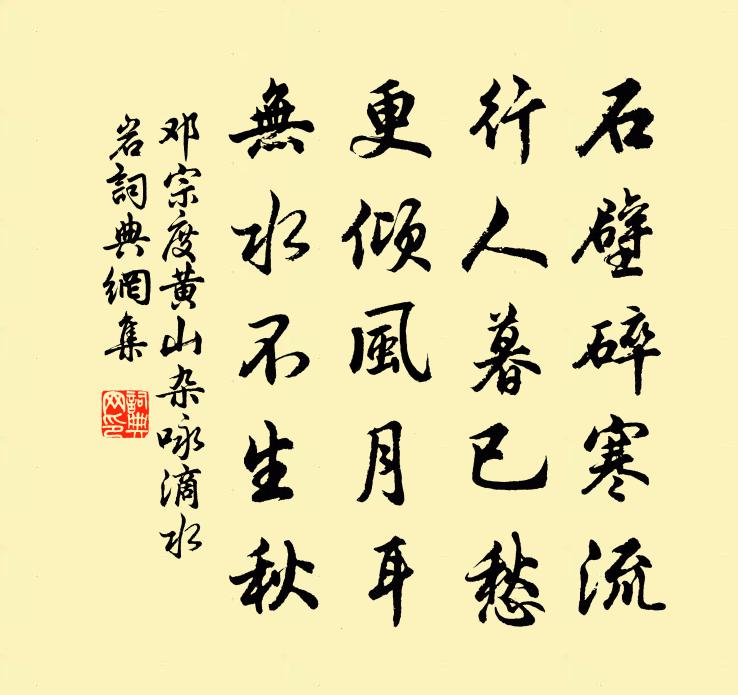 石壁碎寒流
行人暮已愁
更倾風月耳
無水不生秋
邓宗度黄山杂咏滴水
岩詞典網集
詞典
网印